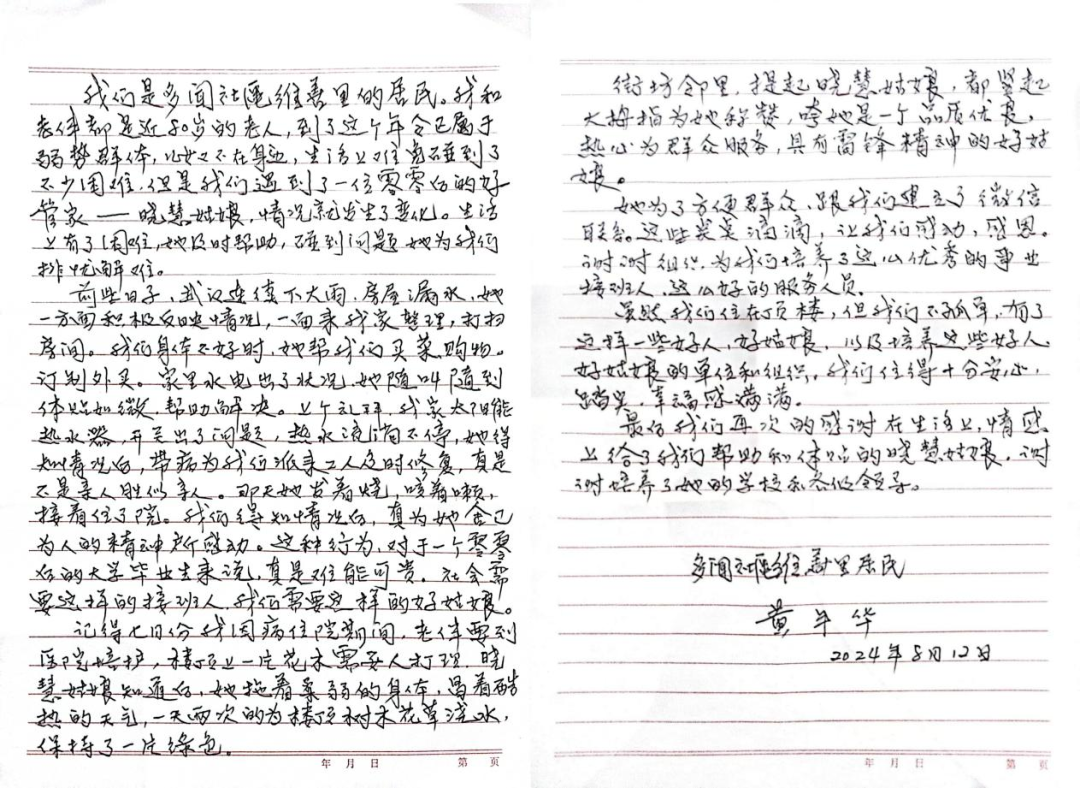 我们是多闻社区维善里的居民。我和
老伴都是近80岁的老人，到了这个年令已属于
弱势群体，儿女又不在身边，生活上难免碰到了
不少困难，但是我们遇到了一位零零后的好
管家——晓慧姑娘，情况就发生了变化。生活
上有了困难，她及时帮助，碰到问题她为我们
排忧解难。
前些日子，武汉连续下大雨，房屋漏水，她
一方面积极反映情况，一面来我家整理，打扫
房间。我们身体不好时，她帮我们买菜购物。
订制外卖。家里水电出了状况，她随叫随到
体贴如微，帮助解决。上个礼拜，我家太阳能
热水器，开关出了问题，热水流淌不停，她得
知情况后，带病为我们派来工人及时修复，真是
不是亲人胜似亲人。那天她发着烧，咳着嗽，
接着住了院。我们得知情况后，真为她舍己
为人的精神所感动。这种行为，对于一个零零
后的大学毕业生来说，真是难能可贵。社会需
要这样的接班人，我们需要这样的好姑娘。
记得七月份我因病住院期间，老伴要到
医院培护，楼顶上一片花木需要人打理，晓
慧姑娘知道后，她拖着柔弱的身体，冒着酷
热的天气，一天两次的为楼顶树木花草浇水，
保持了一片绿色。
年 月 日 第 页
街坊邻里，提起晓慧姑娘，都竖起
大拇指为她称赞，夸她是一个品质优良，
热心为群众服务，具有雷锋精神的好姑
娘。
她为了方便群众，跟我们建立了微信
联系。这些点点滴滴，让我们感动，感恩。
谢谢组织，为我们培养了这么优秀的事业
接班人，这么好的服务人员。
虽然我们住在顶楼，但我们不孤单，有了
这样一些好人，好姑娘，以及培养这些好人
好姑娘的单位和组织，我们住得十分安心，
踏实，幸福感满满。
最后我们再次的感谢在生活上，情感
上给了我们帮助和体贴的晓慧姑娘，谢
谢培养了她的学校和各位领导。
多闻社区维善里居民
黄年华
2024年8月12日
年 月 日 第 页